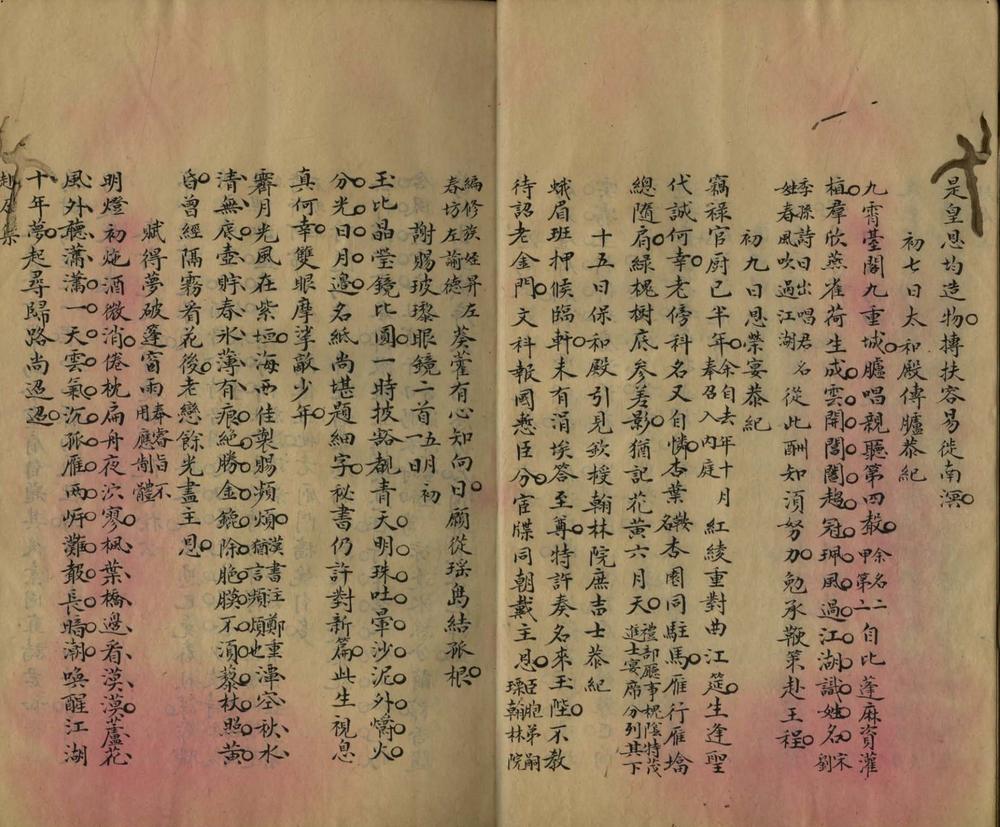 是皇恩均造物搏扶容易徙南溟
初七日太和殿傳臚恭紀
九霄臺閣九重城臚唱親聽第四聲余名二甲第二自比蓬麻資灌
植群欣燕雀荷生成雲開閶闔趨冠珮風過江湖識姓名宋劉
季孫詩曰出唱君名姓春風吹過江湖從此酬知須努力勉承鞭策赴王程
初九日恩榮宴恭紀
竊祿官厨已半年余自去年十月奉召入內庭紅綾重對曲江筵生逢聖
代誠何幸老傍科名又自憐杏葉鞍名杏園同駐馬雁行雁塔
總隨肩綠槐樹底參差影猶記花黃六月天禮部廳事槐陰特茂進士宴席分列其下
十五日保和殿引見欽授翰林院庶吉士恭紀
蛾眉班押候臨軒未有涓埃答至尊特許奏名來玉陛不教
待詔老金門文科報國慙臣分宦牒同朝戴主恩臣胞弟嗣瑮翰林院
編修族姪昇左春坊左諭德葵藿有心知向日願從瑤島結孤根
謝賜玻瓈眼鏡二首五月初一日
玉比晶瑩鏡比圓一時披豁覩青天明珠吐暈沙泥外爝火
分光日月邊名紙尚堪題細字秘書仍許對新篇此生視息
真何幸雙眼摩挲敵少年
霽月光風在紫垣海西佳製賜頻煩漢書注鄭重猶言頻煩也渾容秋水
清無底壺貯春氷薄有痕絕勝金鎞除脃膜不須藜杖照黃
昏曾經隔霧看花後老戀餘光盡主恩
賦得夢破蓬窗雨奉睿旨不用應制體
明燈初灺酒微消倦枕扁舟夜泬寥楓葉橋邊看漠漠蘆花
風外聽瀟瀟一天雲氣沉孤雁兩岍灘聲長暗潮喚醒江湖
十年夢起尋歸路尚迢迢